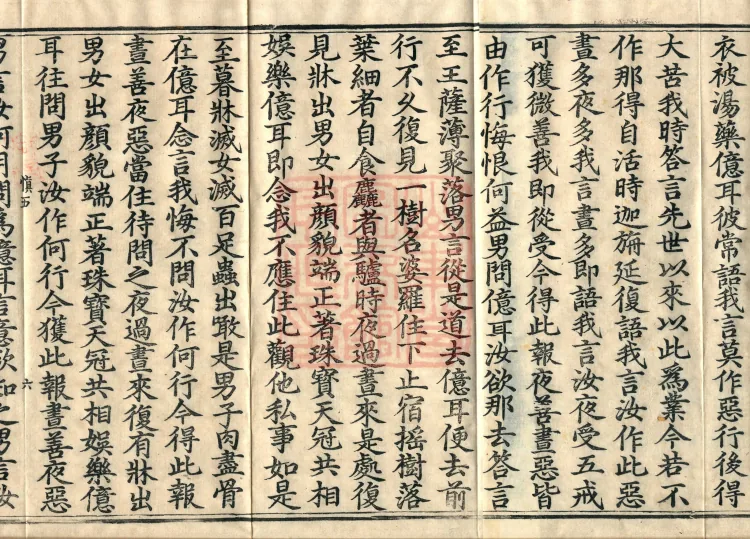 衣被湯藥億耳彼常語我言莫作惡行後得
大苦我時答言先世以來以此爲業今若不
作那得自活時迦旃延復語我言汝作此惡
晝多夜多我言晝多即語我言汝夜受五戒
可獲微善我即從受今得此報夜善晝惡皆
由作行悔恨何益男問億耳汝欲那去答言
至王薩薄聚落男言從是道去億耳便去前
行不久復見一樹名婆羅住下止宿搖樹落
葉細者自食麤者與驢時夜過晝來是處復
見牀出男女出顔貌端正著珠寶天冠共相
娛樂億耳即念我不應住此觀他私事如是
至暮牀滅女滅百足蟲出噉是男子肉盡骨
在億耳念言我悔不問汝作何行今得此報
晝善夜惡當住待問之夜過晝來復有牀出
男女出顏貌端正著珠寶天冠共相娛樂億
耳往問男子汝作何行今獲此報晝善夜惡
慎五 六
男言汝何用問爲億耳言意欲知之男言汝